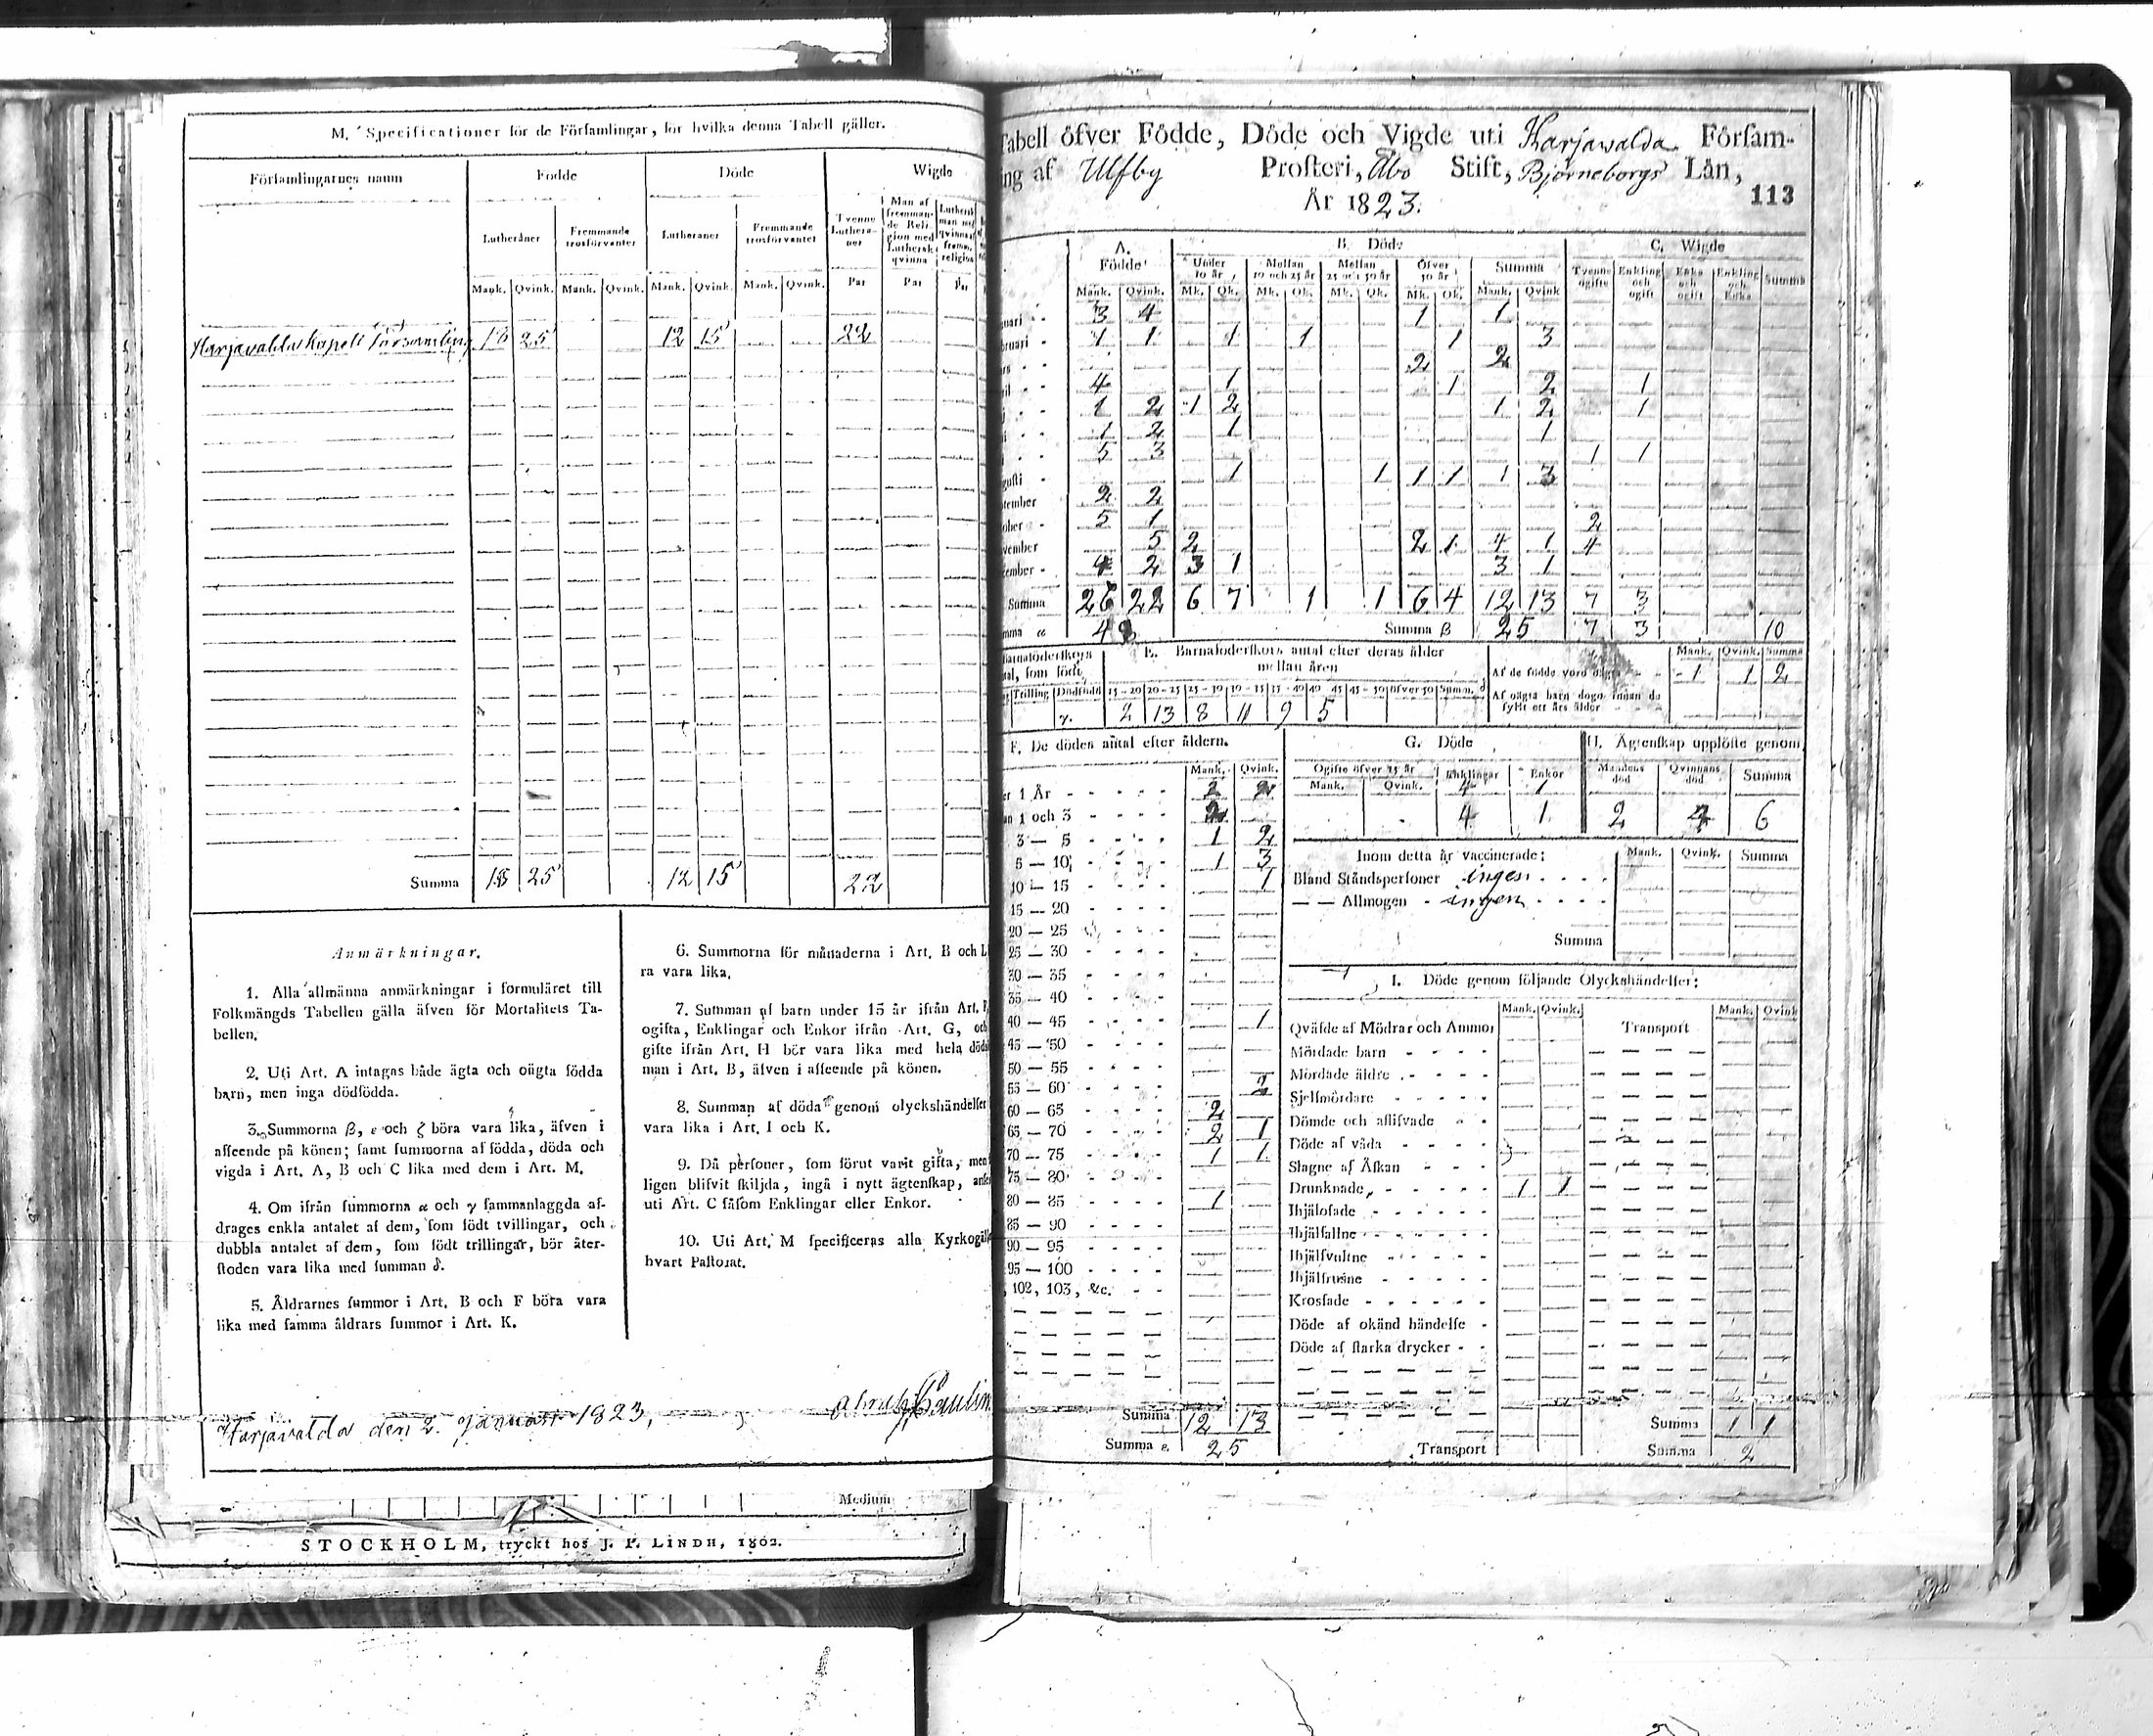 M. Specificationer för de Församlingar, för hvilka denna Tabell gäller.
Församlingarnes namn Födde Döde Wigde
Lutheraner Fremmande trosförvanter Lutheraner Fremmande trosförvanter Tvenne Lutheraner Man af fremmande Religion med Luthersk qvinna
Mank. Qvink. Mank. Qvink. Mank. Qvink. Mank. Qvink. Par Par Par
Harjavalda Kapell församling 18 25 12 15 22
Summa 18 25 12 15 22
Anmärkningar.
1. Alla allmänna anmärkningar i formuläret till
Folkmängds Tabellen gälla äfven för Mortalitets Ta-
bellen.
2. Uti Art. A intagas både ägta och oägta födda
barn, men inga dödfödda.
3. Summorna β, ε och ζ böra vara lika, äfven i
affeende på könen; samt summorna af födda, döda och
vigda i Art. A, B och C lika med dem i Art. M.
4. Om ifrån summorna α och γ sammanlaggda af-
drages enkla antalet af dem, som födt tvillingar, och
dubbla antalet af dem, som födt trillingar, bör åter-
stoden vara lika med summan δ.
5. Åldrarnes summor i Art. B och F böra vara
lika med samma åldrars summor i Art. K.
6. Summorna för månaderna i Art. B och L
ra vara lika.
7. Summan af barn under 15 år ifrån Art.
ogifta, Enklingar och Enkor ifrån Art. G, och
gifte ifrån Art. H bör vara lika med hela död
man i Art. B, äfven i affeende på könen.
8. Summan af döda genom olyckshändelser
vara lika i Art. I och K.
9. Då personer, som förut varit gifta, men
ligen blifvit skiljda, ingå i nytt ägtenskap, anse
uti Art. C såsom Enklingar eller Enkor.
10. Uti Art. M specificeras alla Kyrkogäll
hvart Pastorat.
Harjavalda den 2. Januari 1823,
Medium
STOCKHOLM, tryckt hos J. P. LINDH, 1802.
Tabell öfver Födde, Döde och Vigde uti Harjawalda Församling
ng af Ulfby Prosteri, Åbo Stift, Björneborgs Län,
År 1823.
113
A. Födde B. Döde C. Wigde
Under 10 år Mellan 10 och 25 år Mellan 25 och 50 år Öfver 50 år Summa Tvenne ogifte Enkling och ogift Enka och ogift Enkling och Enka Summa
Mank. Qvink. Mk. Qk. Mk. Qk. Mk. Qk. Mk. Qk. Mank. Qvink
uari 3 4 1 1
bruari 1 1 1 1 1 3
rs 2 2
ril 4 1 1 2 1
j 1 2 1 2 1 2 1
i 1 2 1 1
i 5 3 1 1
gusti 1 1 1 1 1 3
tember 2 2
ober 5 1 2
vember 5 2 2 1 4 1 4
cember 4 2 3 1 3 1
Summa 26 22 6 7 1 1 6 4 12 13 7 3
mma α 48 Summa β 25 7 3 10
Barnaföderskors
tal, som födt
Trilling Dödfödd
γ.
E. Barnaföderskors antal efter deras ålder
mellan åren
15-20 20-25 25-30 30-35 35-40 40-45 45-50 öfver 50 Summ. δ
2 13 8 11 9 5
Mank. Qvink. Summa
Af de födde voro oägta 1 1 2
Af oägta barn dogo innan de
fyllt ett års ålder
F. De dödes antal efter åldern.
Mank. Qvink.
er 1 År 2 2
an 1 och 3 2
3 — 5 1 2
5 — 10 1 3
10 — 15 1
15 — 20
20 — 25
25 — 30
30 — 35
35 — 40
40 — 45 1
45 — 50
50 — 55
55 — 60 2
60 — 65 2
65 — 70 2 1
70 — 75 1 1
75 — 80
80 — 85 1
85 — 90
90 — 95
95 — 100
102, 103, &c.
Summa 12 13
Summa ε. 25
G. Döde
Ogifte öfver 15 år Enklingar Enkor
Mank. Qvink. 4 1
4 1
H. Ägtenskap upplöste genom
Mannens död Qvinnans död Summa
2 4 6
Inom detta år vaccinerade: Mank. Qvink. Summa
Bland Ståndspersoner ingen
— — Allmogen ingen
Summa
I. Döde genom följande Olyckshändelser:
Mank. Qvink. Mank. Qvink
Qväfde af Mödrar och Ammor Transport
Mördade barn
Mördade äldre
Sjelfmördare
Dömde och aflifvade
Döde af våda
Slagne af Åskan
Drunknade 1 1
Ihjälofade
Ihjälfallne
Ihjälfvultne
Ihjälfrusne
Krossade
Döde af okänd händelse
Döde af starka drycker
Summa 1 1
Transport Summa 2